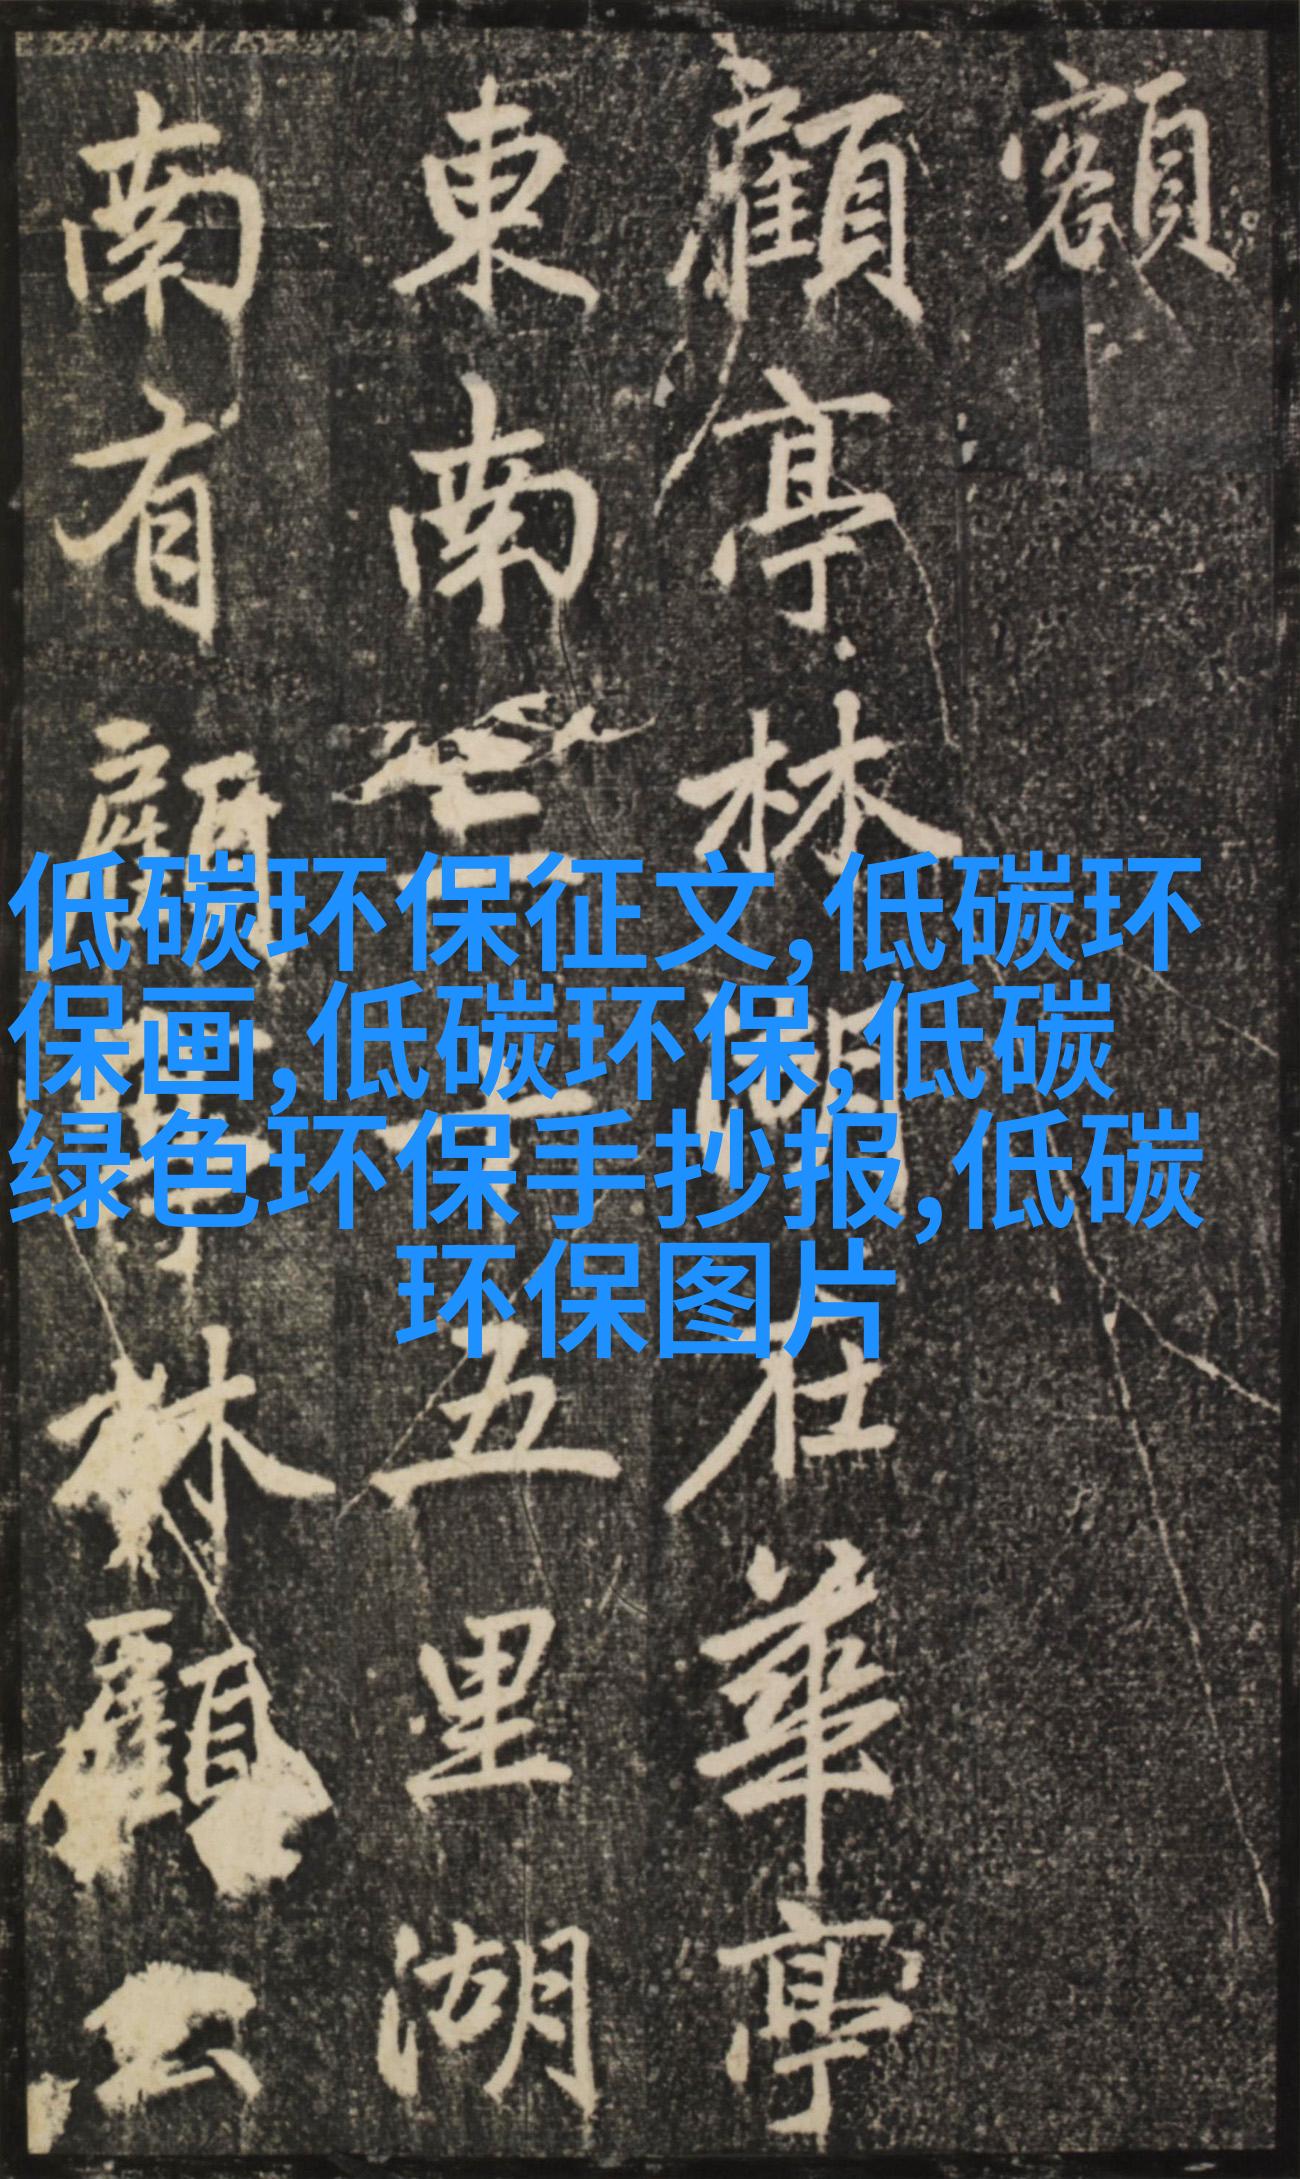 額
顧亭林湖在華亭
東南三十五里湖
南有顧亭林顧公
低碳环保征文,低碳环
保画,低碳环保,低碳
绿色环保手抄报,低碳
环保图片